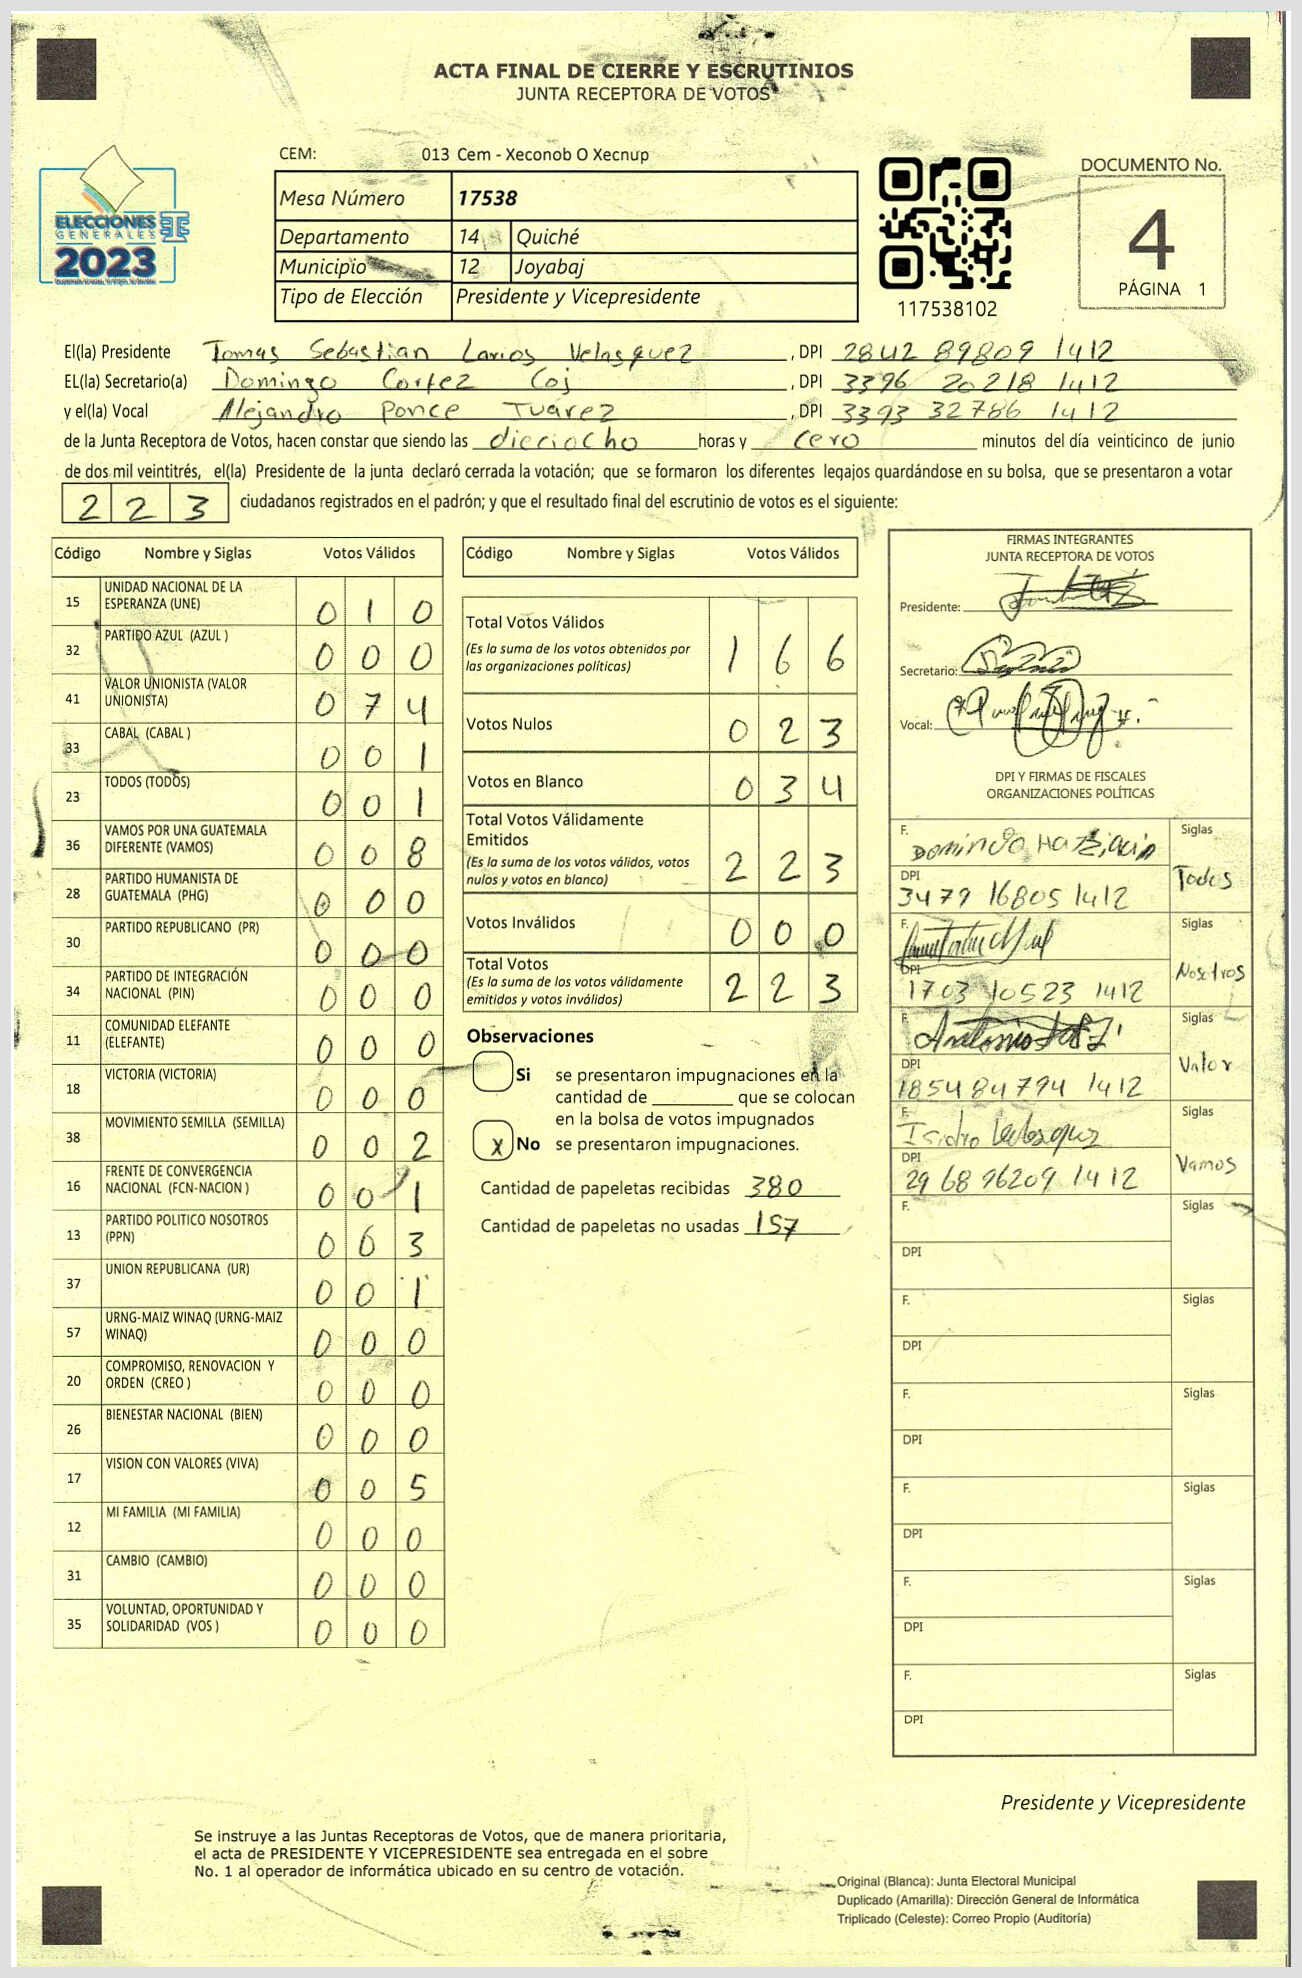 ACTA FINAL DE CIERRE Y ESCRUTINIOS
JUNTA RECEPTORA DE VOTOS
ELECCIONES
GENERALES
2023
CEM: 013 Cem - Xeconob O Xecnup
Mesa Número 17538
Departamento 14 Quiché
Municipio 12 Joyabaj
Tipo de Elección Presidente y Vicepresidente
117538102
DOCUMENTO No.
4
PÁGINA 1
El(la) Presidente Tomas Sebastian Larios Velasquez , DPI 2842 89809 1412
EL(la) Secretario(a) Domingo Cortez Coj , DPI 3396 20218 1412
y el(la) Vocal Alejandro Ponce Tuárez , DPI 3393 32786 1412
de la Junta Receptora de Votos, hacen constar que siendo las dieciocho horas y cero minutos del día veinticinco de junio
de dos mil veintitrés, el(la) Presidente de la junta declaró cerrada la votación; que se formaron los diferentes legajos quardándose en su bolsa, que se presentaron a votar
223 ciudadanos registrados en el padrón; y que el resultado final del escrutinio de votos es el siguiente:
Código Nombre y Siglas Votos Válidos
15 UNIDAD NACIONAL DE LA ESPERANZA (UNE) 010
32 PARTIDO AZUL (AZUL ) 000
41 VALOR UNIONISTA (VALOR UNIONISTA) 074
33 CABAL (CABAL ) 001
23 TODOS (TODOS) 001
36 VAMOS POR UNA GUATEMALA DIFERENTE (VAMOS) 008
28 PARTIDO HUMANISTA DE GUATEMALA (PHG) 000
30 PARTIDO REPUBLICANO (PR) 000
34 PARTIDO DE INTEGRACIÓN NACIONAL (PIN) 000
11 COMUNIDAD ELEFANTE (ELEFANTE) 000
18 VICTORIA (VICTORIA) 000
38 MOVIMIENTO SEMILLA (SEMILLA) 002
16 FRENTE DE CONVERGENCIA NACIONAL (FCN-NACION ) 001
13 PARTIDO POLITICO NOSOTROS (PPN) 063
37 UNION REPUBLICANA (UR) 001
57 URNG-MAIZ WINAQ (URNG-MAIZ WINAQ) 000
20 COMPROMISO, RENOVACION Y ORDEN (CREO ) 000
26 BIENESTAR NACIONAL (BIEN) 000
17 VISION CON VALORES (VIVA) 005
12 MI FAMILIA (MI FAMILIA) 000
31 CAMBIO (CAMBIO) 000
35 VOLUNTAD, OPORTUNIDAD Y SOLIDARIDAD (VOS ) 000
Código Nombre y Siglas Votos Válidos
Total Votos Válidos 166
(Es la suma de los votos obtenidos por
las organizaciones políticas)
Votos Nulos 023
Votos en Blanco 034
Total Votos Válidamente
Emitidos 223
(Es la suma de los votos válidos, votos
nulos y votos en blanco)
Votos Inválidos 000
Total Votos 223
(Es la suma de los votos válidamente
emitidos y votos inválidos)
Observaciones
Si se presentaron impugnaciones en la
cantidad de ________ que se colocan
en la bolsa de votos impugnados
x No se presentaron impugnaciones.
Cantidad de papeletas recibidas 380
Cantidad de papeletas no usadas 157
FIRMAS INTEGRANTES
JUNTA RECEPTORA DE VOTOS
Presidente:
Secretario:
Vocal:
DPI Y FIRMAS DE FISCALES
ORGANIZACIONES POLÍTICAS
F. Domingo Siglas
DPI 3479 16805 1412 Todos
F. Siglas
DPI 1703 10523 1412 Nosotros
F. Antonio Siglas
DPI 1854 84794 1412 Valor
F. Isidro Velasquez Siglas
DPI 2968 96209 1412 Vamos
F. Siglas
DPI
F. Siglas
DPI
F. Siglas
DPI
F. Siglas
DPI
F. Siglas
DPI
F. Siglas
DPI
Presidente y Vicepresidente
Se instruye a las Juntas Receptoras de Votos, que de manera prioritaria,
el acta de PRESIDENTE Y VICEPRESIDENTE sea entregada en el sobre
No. 1 al operador de informática ubicado en su centro de votación.
Original (Blanca): Junta Electoral Municipal
Duplicado (Amarilla): Dirección General de Informática
Triplicado (Celeste): Correo Propio (Auditoría)